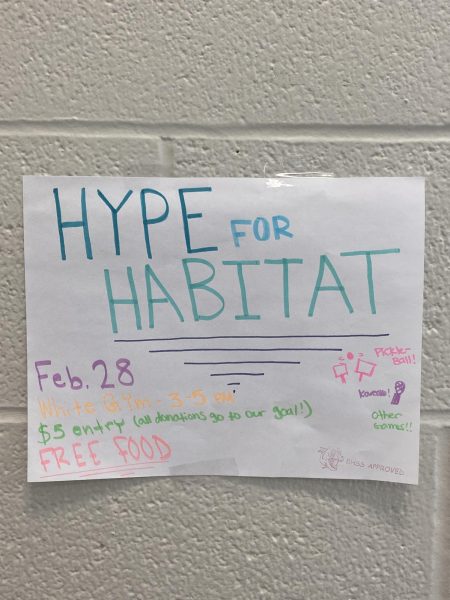 HYPE FOR
HABITAT
Feb. 28
White Gym - 3-5 PM
$5 entry (all donations go to our goal!)
FREE FOOD
Pickle-
Ball!
Karaoke!
other
Games!!
BHSS APPROVED